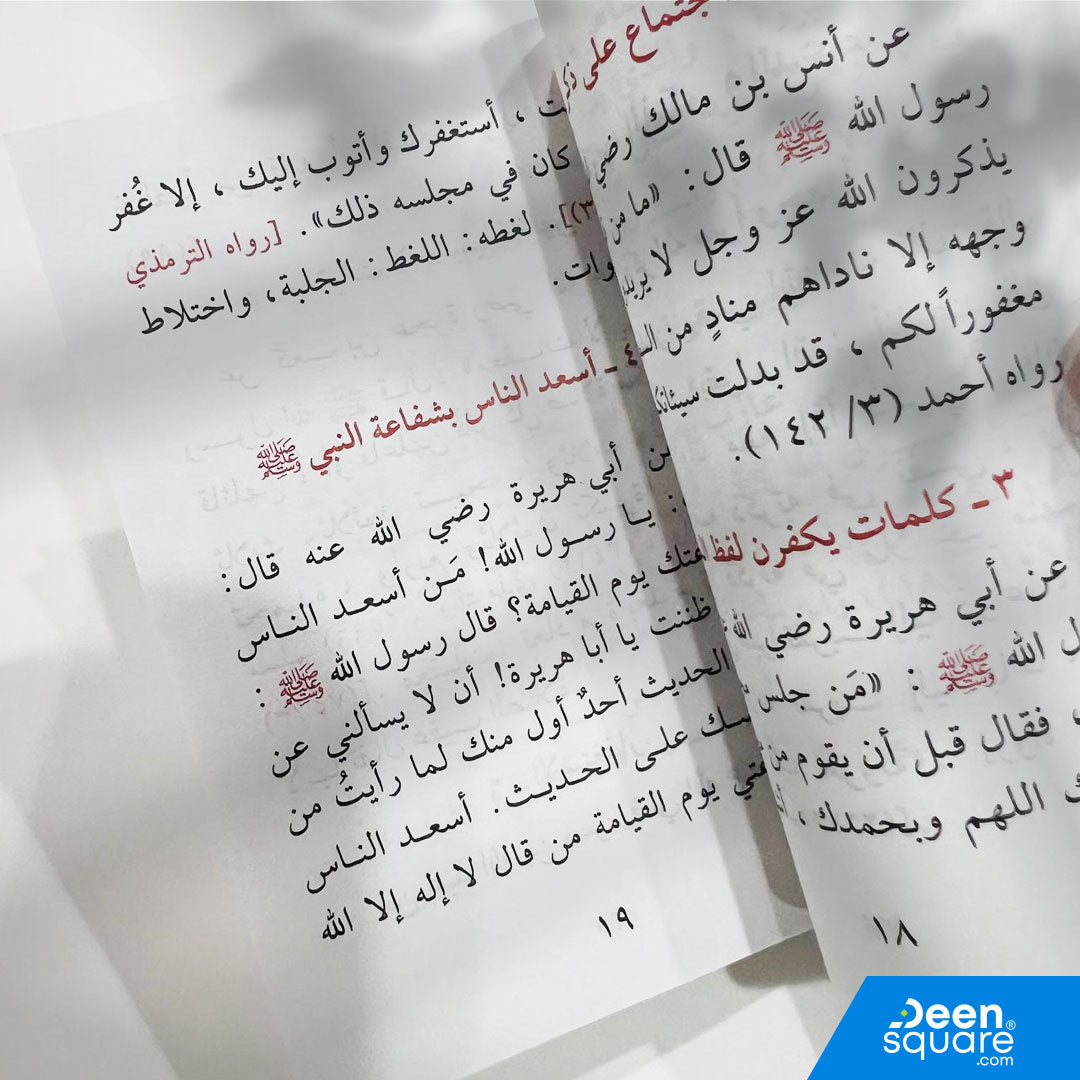 جتماع على ذكر
عن أنس بن مالك رضي
رسول الله ﷺ قال: «ما من
يذكرون الله عز وجل لا يريد
وجهه إلا ناداهم منادٍ من
مغفوراً لكم ، قد بدلت سيئاتك
رواه أحمد (٣/ ١٤٢).
٣ ـ كلمات يكفرن لفظ
عن أبي هريرة رضي الله
الله ﷺ : «مَن جلس
فقال قبل أن يقوم من
اللهم وبحمدك ،
١٨
ت ، أستغفرك وأتوب إليك ، إلا غُفر
كان في مجلسه ذلك». [رواه الترمذي
٣)]. لغطه: اللغط: الجلبة، واختلاط
وات.
٤ ـ أسعد الناس بشفاعة النبي ﷺ
ن أبي هريرة رضي الله عنه قال:
: يا رسول الله! مَن أسعد الناس
عتك يوم القيامة؟ قال رسول الله ﷺ :
ظننت يا أبا هريرة! أن لا يسألني عن
الحديث أحدٌ أول منك لما رأيتُ من
سك على الحديث. أسعد الناس
عتي يوم القيامة من قال لا إله إلا الله
١٩
Deen®
square
.com